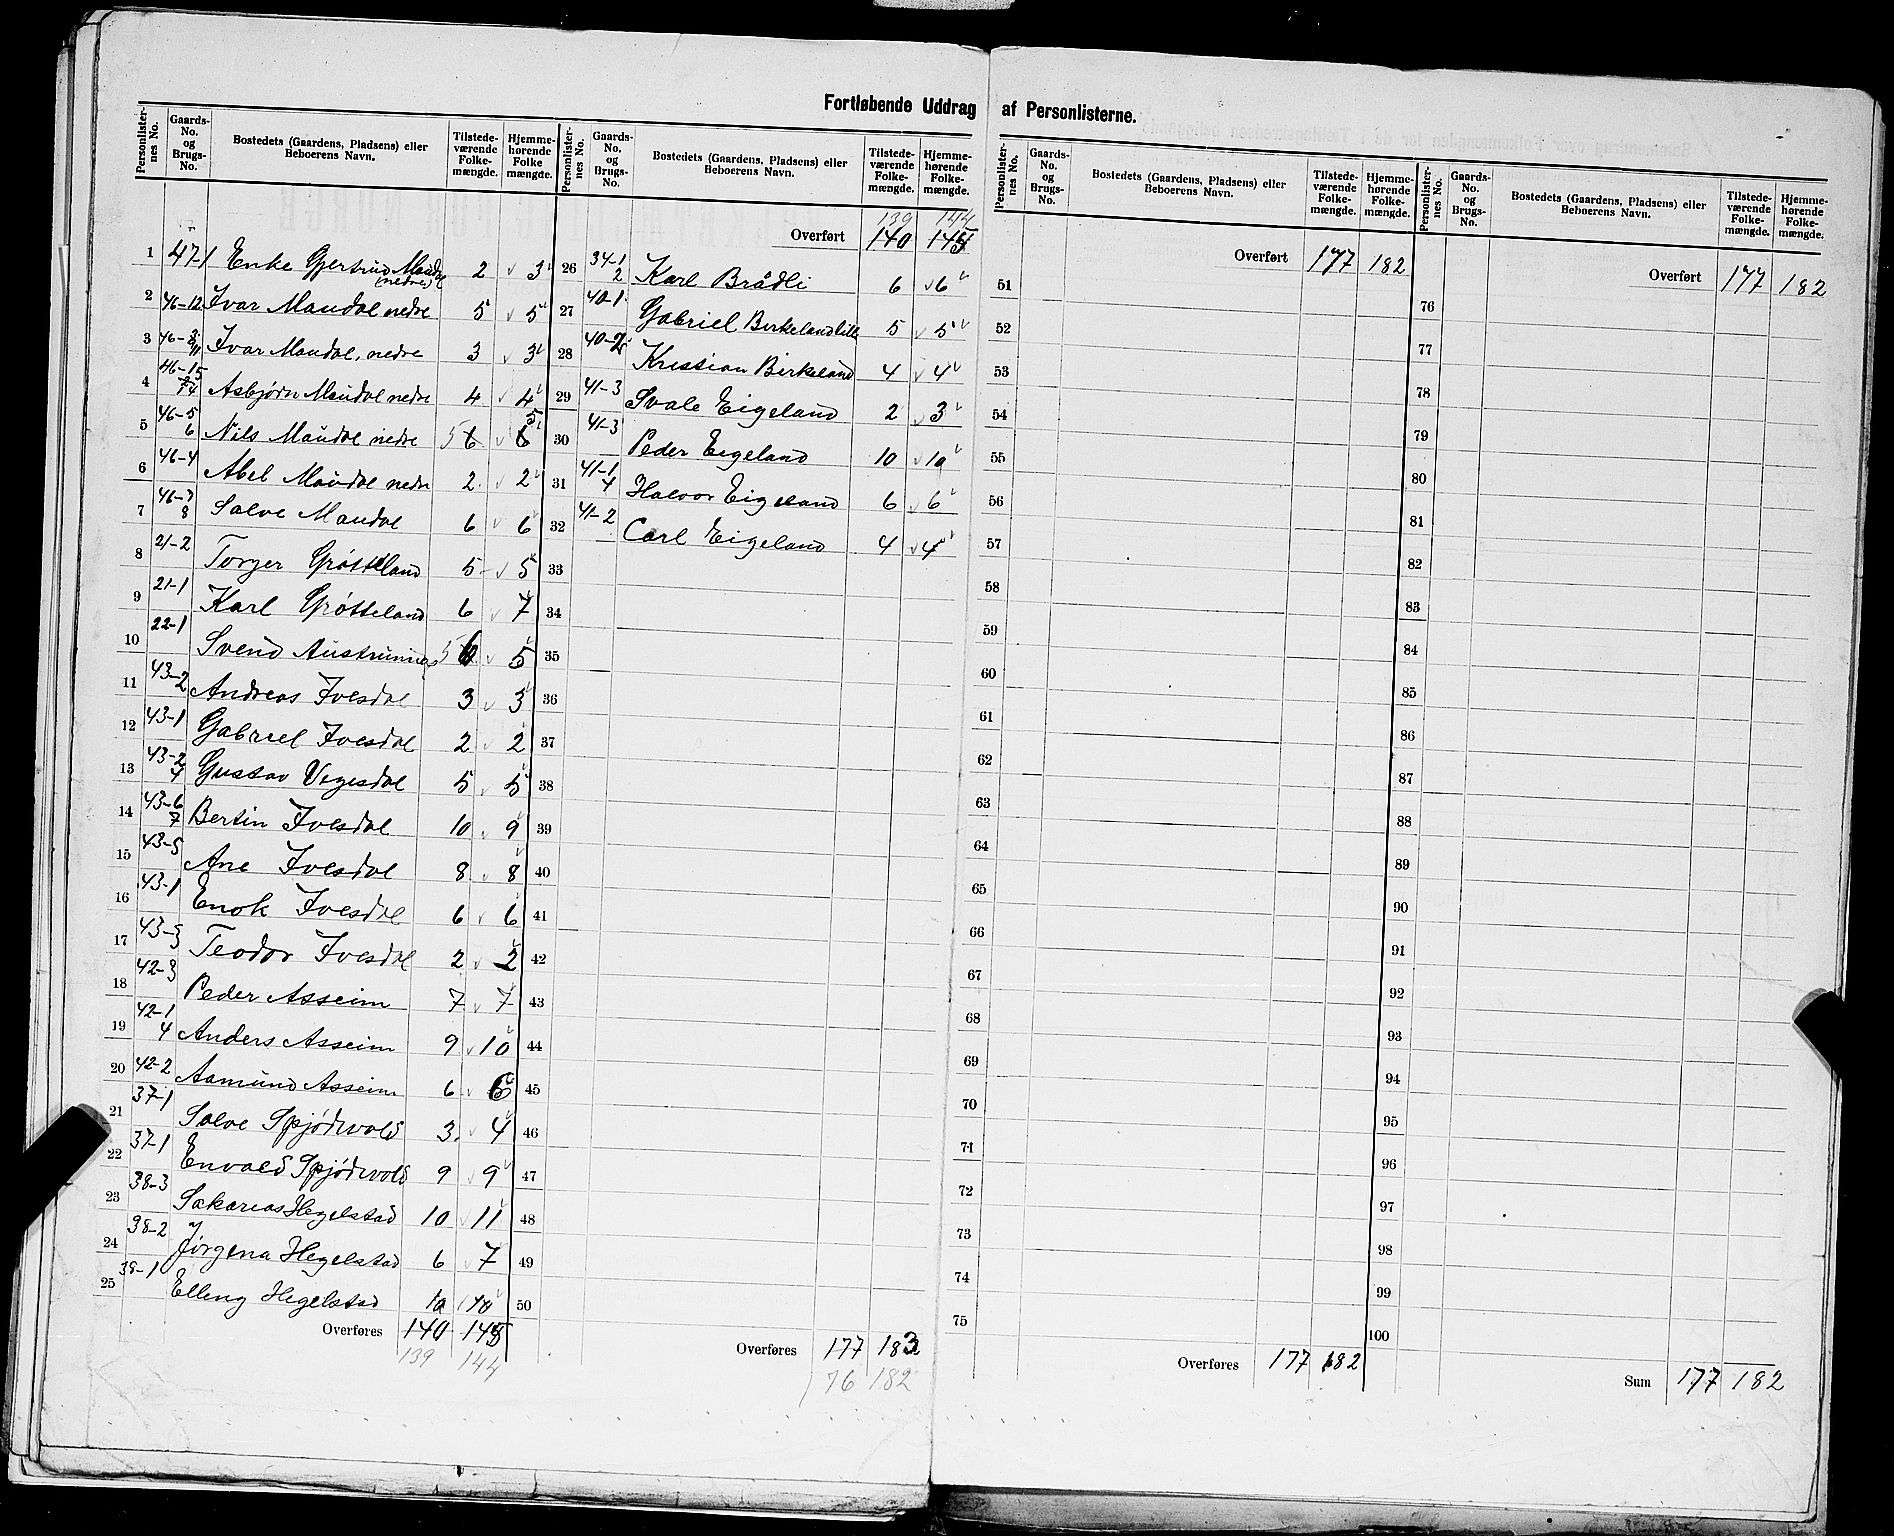 Fortløbende Uddrag af Personlisterne.
Personlister-nes No. | Gaards-No. og Brugs-No. | Bostedets (Gaardens, Pladsens) eller Beboerens Navn. | Tilstede-værende Folke-mængde. | Hjemme-hørende Folke mængde.
1 | 47-1 | Enke Gertrud Maudal (nedre) | 2 | 3
2 | 46-12 | Ivar Maudal nedre | 5 | 5
3 | 46- 11 | Ivar Maudal, nedre | 3 | 3
4 | 46-15 14 | Asbjørn Maudal nedre | 4 | 4
5 | 46-5 6 | Nils Maudal nedre | 5 6 | 6 5
6 | 46-4 | Abel Maudal nedre | 2 | 2
7 | 46-7 8 | Salve Maudal | 6 | 6
8 | 21-2 | Torger Grøtteland | 5 | 5
9 | 21-1 | Karl Grøtteland | 6 | 7
10 | 22-1 | Svend Austrumnes | 5 6 | 5
11 | 43-2 | Andreas Ivesdal | 3 | 3
12 | 43-1 | Gabriel Ivesdal | 2 | 2
13 | 43-2 4 | Gustav Vegesdal | 5 | 5
14 | 43-6 7 | Bertin Ivesdal | 10 | 9
15 | 43-5 | Ane Ivesdal | 8 | 8
16 | 43-1 | Enok Ivesdal | 6 | 6
17 | 43-3 | Teodor Ivesdal | 2 | 2
18 | 42-3 | Peder Asseim | 7 | 7
19 | 42-1 4 | Anders Asseim | 9 | 10
20 | 42-2 | Aamund Asseim | 6 | 6
21 | 37-1 | Salve Spjødevold | 3 | 4
22 | 37-1 | Envald Spjødevold | 9 | 9
23 | 38-3 | Sakarias Hegelstad | 10 | 11
24 | 38-2 | Jørgena Hegelstad | 6 | 7
25 | 38-1 | Elleng Hegelstad | 10 | 10
Overføres | 140 | 145
139 | 144
Personlister-nes No. | Gaards-No. og Brugs-No. | Bostedets (Gaardens, Pladsens) eller Beboerens Navn. | Tilstede-værende Folke-mængde. | Hjemme-hørende Folke-mængde.
139 | 144
Overført | 140 | 145
26 | 34-1 2 | Karl Brådli | 6 | 6
27 | 40-1 | Gabriel Birkeland lille | 5 | 5
28 | 40-2 | Kristian Birkeland | 4 | 4
29 | 41-3 | Svale Eigeland | 2 | 3
30 | 41-3 | Peder Eigeland | 10 | 10
31 | 41-1 4 | Halvor Eigeland | 6 | 6
32 | 41-2 | Carl Eigeland | 4 | 4
33
34
35
36
37
38
39
40
41
42
43
44
45
46
47
48
49
50
Overføres | 177 | 183
76 | 182
Personlister-nes No. | Gaards-No. og Brugs-No. | Bostedets (Gaardens, Pladsens) eller Beboerens Navn. | Tilstede-værende Folke-mængde. | Hjemme-hørende Folke-mængde.
Overført | 177 | 182
51
52
53
54
55
56
57
58
59
60
61
62
63
64
65
66
67
68
69
70
71
72
73
74
75
Overføres | 177 | 182
Personlister-nes No. | Gaards-No. og Brugs-No. | Bostedets (Gaardens, Pladsens) eller Beboerens Navn. | Tilstede-værende Folke-mængde. | Hjemme-hørende Folke-mængde.
Overført | 177 | 182
76
77
78
79
80
81
82
83
84
85
86
87
88
89
90
91
92
93
94
95
96
97
98
99
100
Sum | 177 | 182